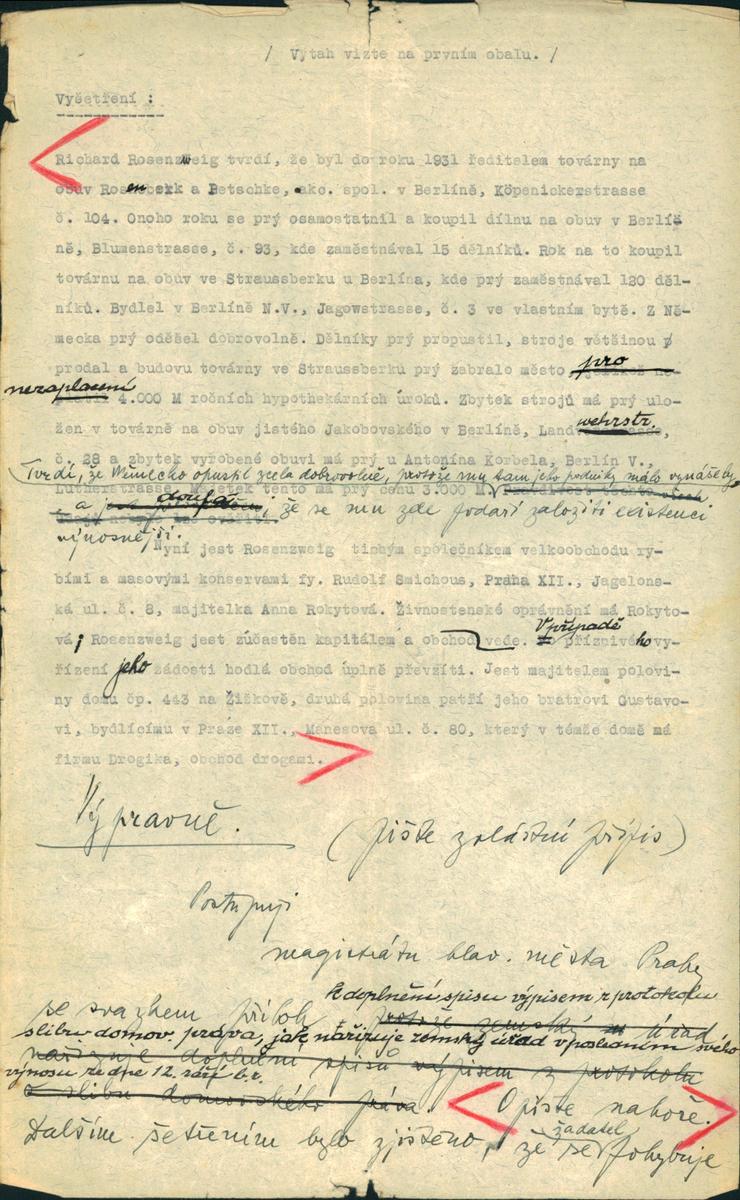 / Výtah vizte na prvním obalu. /
Vyšetření :
Richard Rosenzweig tvrdí, že byl do roku 1931 ředitelem továrny na
obuv Rosenberk a Petschke, akc. spol. v Berlíně, Köpenickerstrasse
č. 104. Onoho roku se prý osamostatnil a koupil dílnu na obuv v Berlí
ně, Blumenstrasse, č. 93, kde zaměstnával 15 dělníků. Rok na to koupil
továrnu na obuv ve Straussberku u Berlína, kde prý zaměstnával 120 děl-
níků. Bydlel v Berlíně N.V., Jagowstrasse, č. 3 ve vlastním bytě. Z Ně-
mecka prý odešel dobrovolně. Dělníky prý propustil, stroje většinou
prodal a budovu továrny ve Straussberku prý zabralo město, pro
nezaplacení
4.000 M ročních hypothekárních úroků. Zbytek strojů má prý ulo-
žen v továrně na obuv jistého Jakobovského v Berlíně, Landwehrstr.
č. 28 a zbytek vyrobené obuvi má prý u Antonína Korbela, Berlín V.,
Tvrdí, že Německo opustil zcela dobrovolně, protože mu tam jeho podniky málo vynášely,
Lutherstrasse, zbytek tento má prý cenu 3.000 M.
a doufá, že se mu zde podaří založiti existenci
výnosnější.
Nyní jest Rosenzweig tichým společníkem velkoobchodu ry-
bími a masovými konservami fy. Rudolf Smichous, Praha XII., Jagelons-
ká ul. č. 8, majitelka Anna Rokytová. Živnostenské oprávnění má Rokyto-
vá; Rosenzweig jest zúčastěn kapitálem a obchod vede. V případě příznivého vy-
řízení jeho žádosti hodlá obchod úplně převzíti. Jest majitelem polovi-
ny domu čp. 443 na Žižkově, druhá polovina patří jeho bratrovi Gustavo-
vi, bydlícímu v Praze XII., Mánesova ul. č. 80, který v témže domě má
firmu Drogika, obchod drogami.
Výpravně.
(pište zvláštní přípis)
Postupuji
magistrátu hlav. města Prahy
k doplnění spisu výpisem z protokolu
se svazkem příloh protože zemský úřad
slibu domov. práva, jak nařizuje zemský úřad v posledním svého
nařizuje doplnění spisů výpisem z protokolu
výnosu ze dne 12. září b.r.
o slibu domovského práva. Opište nahoře.
žadatel
Dalším šetřením bylo zjištěno, že se pohybuje